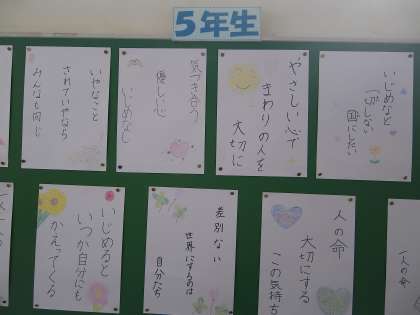 5年生
いじめなど
一切しない
国にしたい
やさしい心で
まわりの人を
大切に
気づき合う
優しい心
いじめなし
いやなこと
されていやなら
みんなも同じ
一人の命
人の命
大切にする
この気持ち
差別ない
世界にするのは
自分たち
いじめると
いつか自分にも
かえってくる